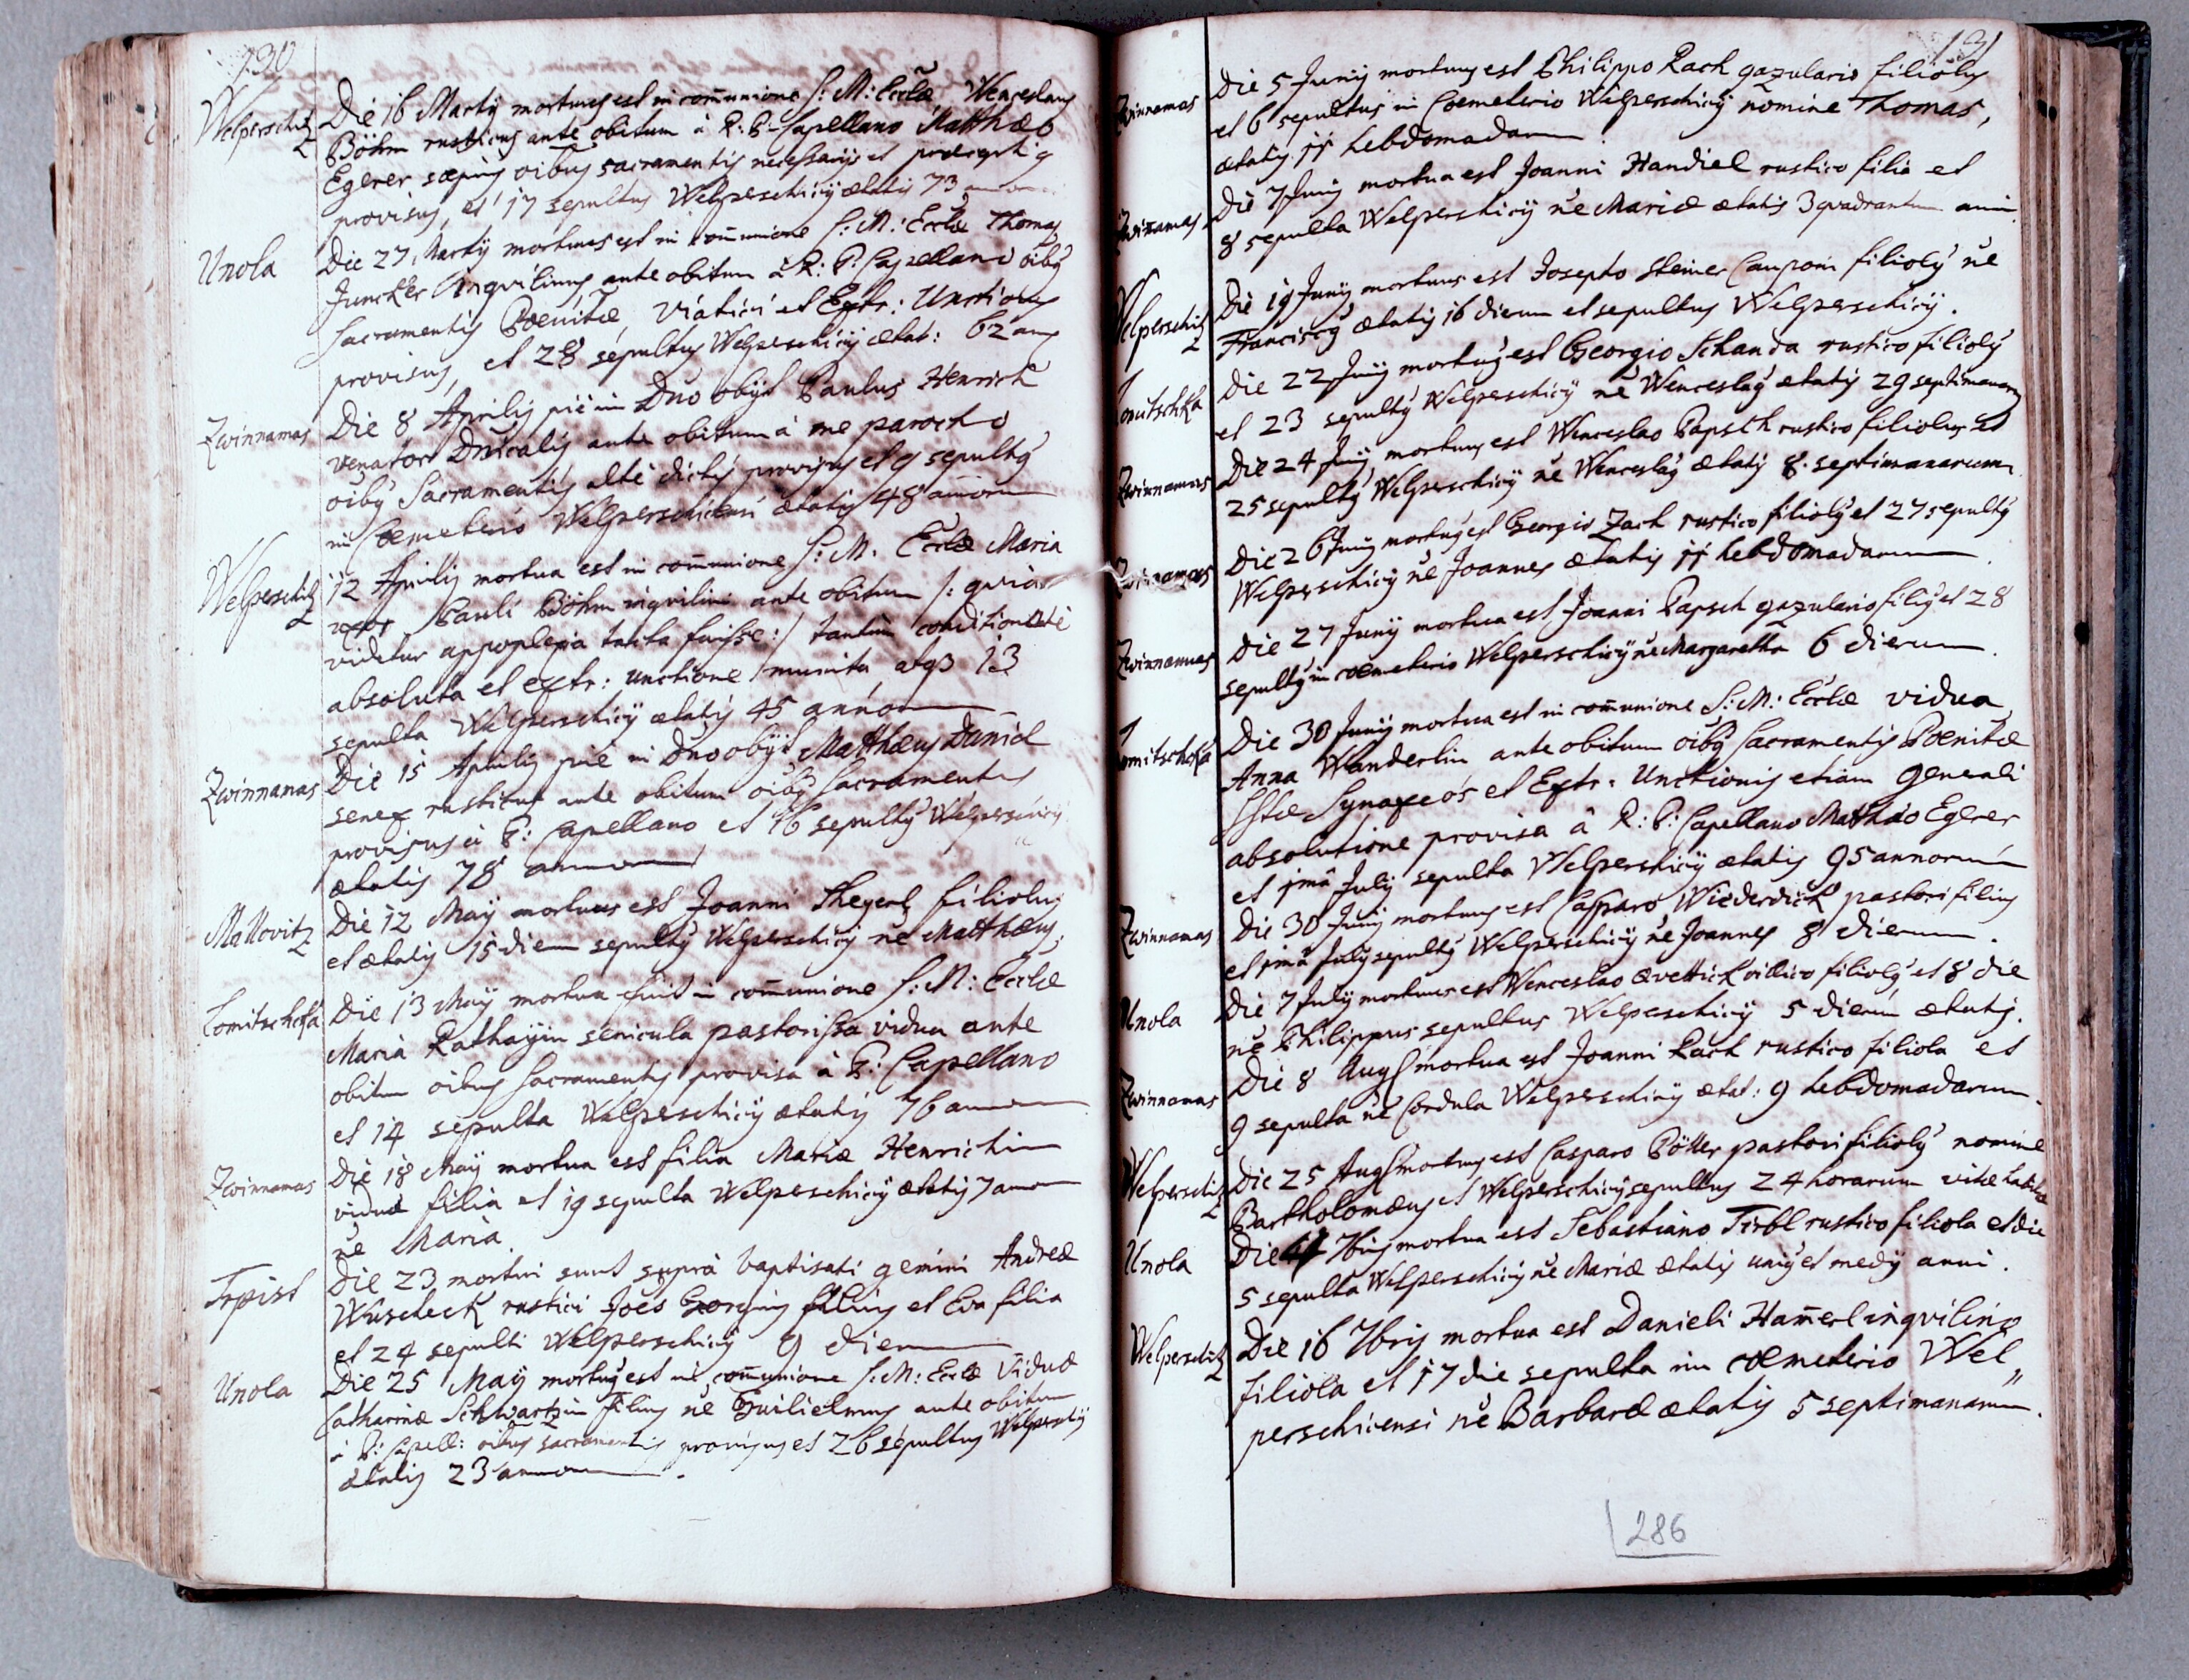 130
Welperschitz
Die 16 Martÿ mortuus est in com̄unione S: M: Eccłæ Wenceslaus
Böhm rusticus ante obitum à R: P. Capellano Matthæo
Egerer sæpius oībus sacramentis necessarÿs et
provisus, et 17 sepultus Welperschicÿ ætatis 73
Unola
Die 27 Martÿ mortuus est in com̄unione S: M: Eccłæ Thomas
Juncker Inqvilinus ante obitum à R: P: Capellano oībus
Sacramentis Pœnitæ, Viatici et Extr: Unctionis
provisus, et 28 sepultus Welperschicÿ ætat: 62 an̄
Zwinnamas
Die 8 Aprilis piè in Dn̄o obÿt Paulus Henrich
venator Dn̄icalis ante obitum à me parocho
oībus Sacramentis altè dictis provisus et 9 sepultus
in Cœmeterio Welperschicensi ætatis 48 an̄orum
Welperschitz
12 Aprilis mortua est in com̄unione S: M. Eccłæ Maria
uxor Pauli Böhm inqvilini ante obitum /: qvia
videtur appoplexia tacta fuisse :/ tantùm conditionatè
absoluta et extr: unctione munita atq3 13
sepulta Welperschicÿ ætatis 45 annorum
Zwinnamas
Die 15 Aprilis piè in Dn̄o obÿt Matthæus Daniel
senex rusticus ante obitum oībus Sacramentis
provisus à P: Capellano et 16 sepultus Welperschicÿ
ætatis 78 annorum
Mallovitz
Die 12 Maÿ mortuus est Joanni Thegerl filiolus
et ætatis 15 dierum sepultus Welperschicÿ n̄e Matthæus.
Lomitschcka
Die 13 Maÿ mortua fuit in com̄unione S: M: Eccłæ
Maria Rathaÿin senicula pastorissa vidua ante
obitum oībus Sacramentis provisa à P: Capellano
et 14 sepulta Welperschicÿ ætatis 76 annorum
Zwinnamas
Die 18 Maÿ mortua est filia Mariæ Henrichin
viduæ filia et 19 sepulta Welperschicÿ ætatis 7 annorum
n̄e Maria.
Trpist
Die 23 mortui sunt suprà baptisati gemini Andreæ
Wuscheck rustici Joēs Georgius filius et Eva filia
et 24 sepulti Welperschicÿ 9 dierum
Unola
Die 25 Maÿ mortuus est in com̄unione S: M: Eccłæ Viduæ
Catharinæ Schwartzin filius n̄e Guilielmus ante obitum
à P: Capell: oībus sacramentis provisus et 26 sepultus Welperschicÿ
ætatis 23 annorum.
131
Zwinnamas
Die 5 Junÿ mortuus est Philippo Rach gazulario filiolus
et 6 sepultus in Coemeterio Welperschicÿ nomine Thomas,
ætatis 11 hebdomadarum
Zwinnamas
Die 7 Junÿ mortua est Joanni Handiel rustico filia et
8 sepulta Welperschicÿ n̄e Mariæ ætatis 3 qvadrantum anni.
Welperschitz
Die 19 Junÿ mortuus est Josepho Steiner Cauponi filiolus n̄e
Franciscus ætatis 16 dierum et sepultus Welperschicÿ.
Lomitschka
Die 22 Junÿ mortuus est Georgio Schanda rustico filiolus
et 23 sepultus Welperschicÿ n̄e Wenceslaus ætatis 29 septimanarum
Zwinnamas
Die 24 Junÿ mortuus est Wenceslao Papsch rustico filiolus et
25 sepultus Welperschicÿ n̄e Wenceslaus ætatis 8. septimanarum
Zwinnamas
Die 26 Junÿ mortuus est Georgio Zach rustico filiolus et 27 sepultus
Welperschicÿ n̄e Joannes ætatis 11 hebdomadarum
Zwinnamas
Die 27 Junÿ mortua est Joanni Papsch gazulario et 28
in cœmeterio Welperschicÿ n̄e Margaretha 6 dierum.
Lomitschcka
Die 30 Junÿ mortua est in com̄unione S: M: Eccłæ vidua
Anna Wanderlin ante obitum oībus Sacramentis Pœnitæ
SStæ Synaxeos et Extr: Unctionis etiam generali
absolutione provisa à R: P: Capellano Matthæo Egerer
et 1mâ Julÿ sepulta Welperschicÿ ætatis 95 annorum
Zwinnamas
Die 30 Junÿ mortuus est Casparo Wiederdick pastori filius
et 1mâ Julÿ sepultus Welperschicÿ n̄e Joannes 8 dierum.
Unola
Die 7 Julÿ mortuus est Wenceslao villico filiolus et 8 die
n̄e Philippus sepultus Welperschicÿ 5 dierum ætatis.
Zwinnamas
Die 8 Aug mortua est Joanni Rach rustico filiola et
9 sepulta n̄e Cordula Welperschicÿ ætat: 9 hebdomadarum.
Welperschitz
Die 25 Aug mortuus est Casparo Böller pastori filiolus nomine
Bartholomæus et Welperschicÿ sepultus 24 horarum vitæ
Unola
Die 4 7bris mortua est Sebastiano Tirbl rustico filiola et die
5 sepulta Welperschicÿ n̄e Mariæ ætatis unius et medÿ anni.
Welperschitz
Die 16 7bris mortua est Danieli Ham̄erl inqvilino
filiola et 17 die sepulta in cœmeterio Wel„
perschicensi n̄e Barbaræ ætatis 5 septimanarum.
286